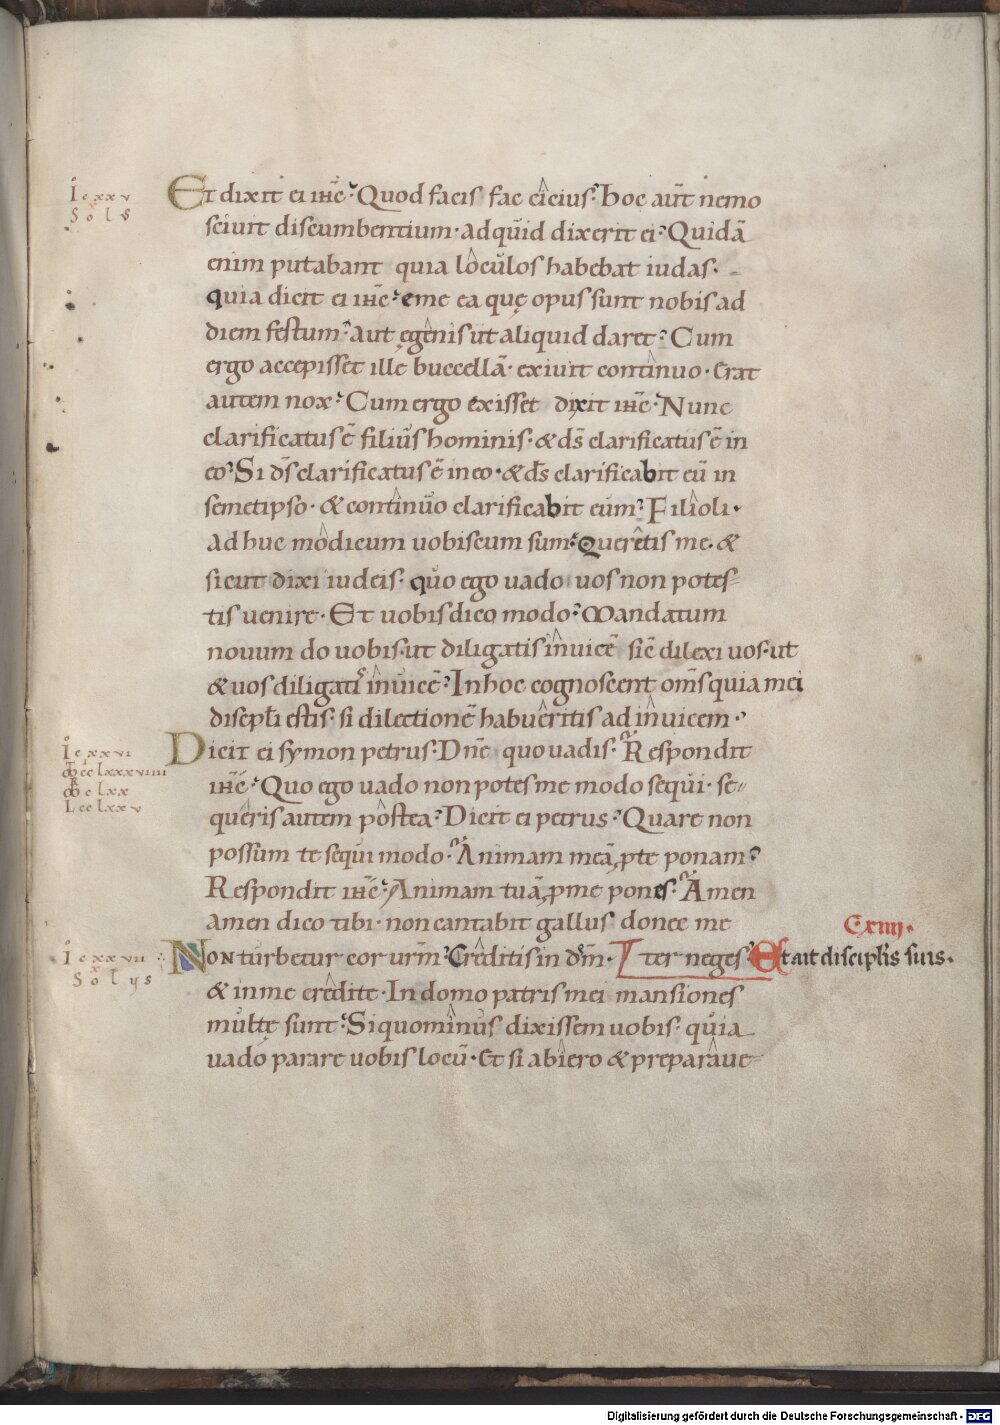 181
Io cxxv
Solus
Et dixit ei ihc. Quod facis fac cicius. hoc aut nemo
sciuit discumbentium. ad quid dixerit ei. Quidā
enim putabant quia loculos habebat iudas.
quia dicit ei ihc. eme ea quę opus sunt nobis ad
diem festum. aut egenis ut aliquid daret. Cum
ergo accepisset ille buccellā. exiuit continuo. Erat
autem nox. Cum ergo exisset dixit ihc. Nunc
clarificatus ē filius hominis. & ds clarificatus ē in
eo. Si ds clarificatus ē in eo. & ds clarificabit eū in
semetipso. & continuo clarificabit eum. Filioli.
adhuc modicum uobiscum sum. Queretis me. &
sicut dixi iudeis. quo ego uado uos non potes-
tis uenire. Et uobis dico modo. Mandatum
nouum do uobis. ut diligatis inuicē sic dilexi uos. ut
& uos diligatis inuicē. In hoc cognoscent oms quia mei
discpli estis. si dilectionē habueritis ad inuicem.
Io cxxvi
Mt cclxxxviiii
Mr clxx
L cclxxv
Dicit ei symon petrus. Dne quo uadis. Respondit
ihc. Quo ego uado non potes me modo sequi. se-
queris autem postea. Dicit ei petrus. Quare non
possum te sequi modo. Animam meā p te ponam.
Respondit ihc. Animam tuā p me pones. Amen
amen dico tibi. non cantabit gallus donec me
ter neges.
Cxiiij.
Et ait disciplis suis.
Io cxxvii
Solus
Non turbetur cor urm. Creditis in dm.
& in me credite. In domo patris mei mansiones
multę sunt. Si quominus dixissem uobis. quia
uado parare uobis locū. Et si abiero & preparaue-
Digitalisierung gefördert durch die Deutsche Forschungsgemeinschaft - DFG